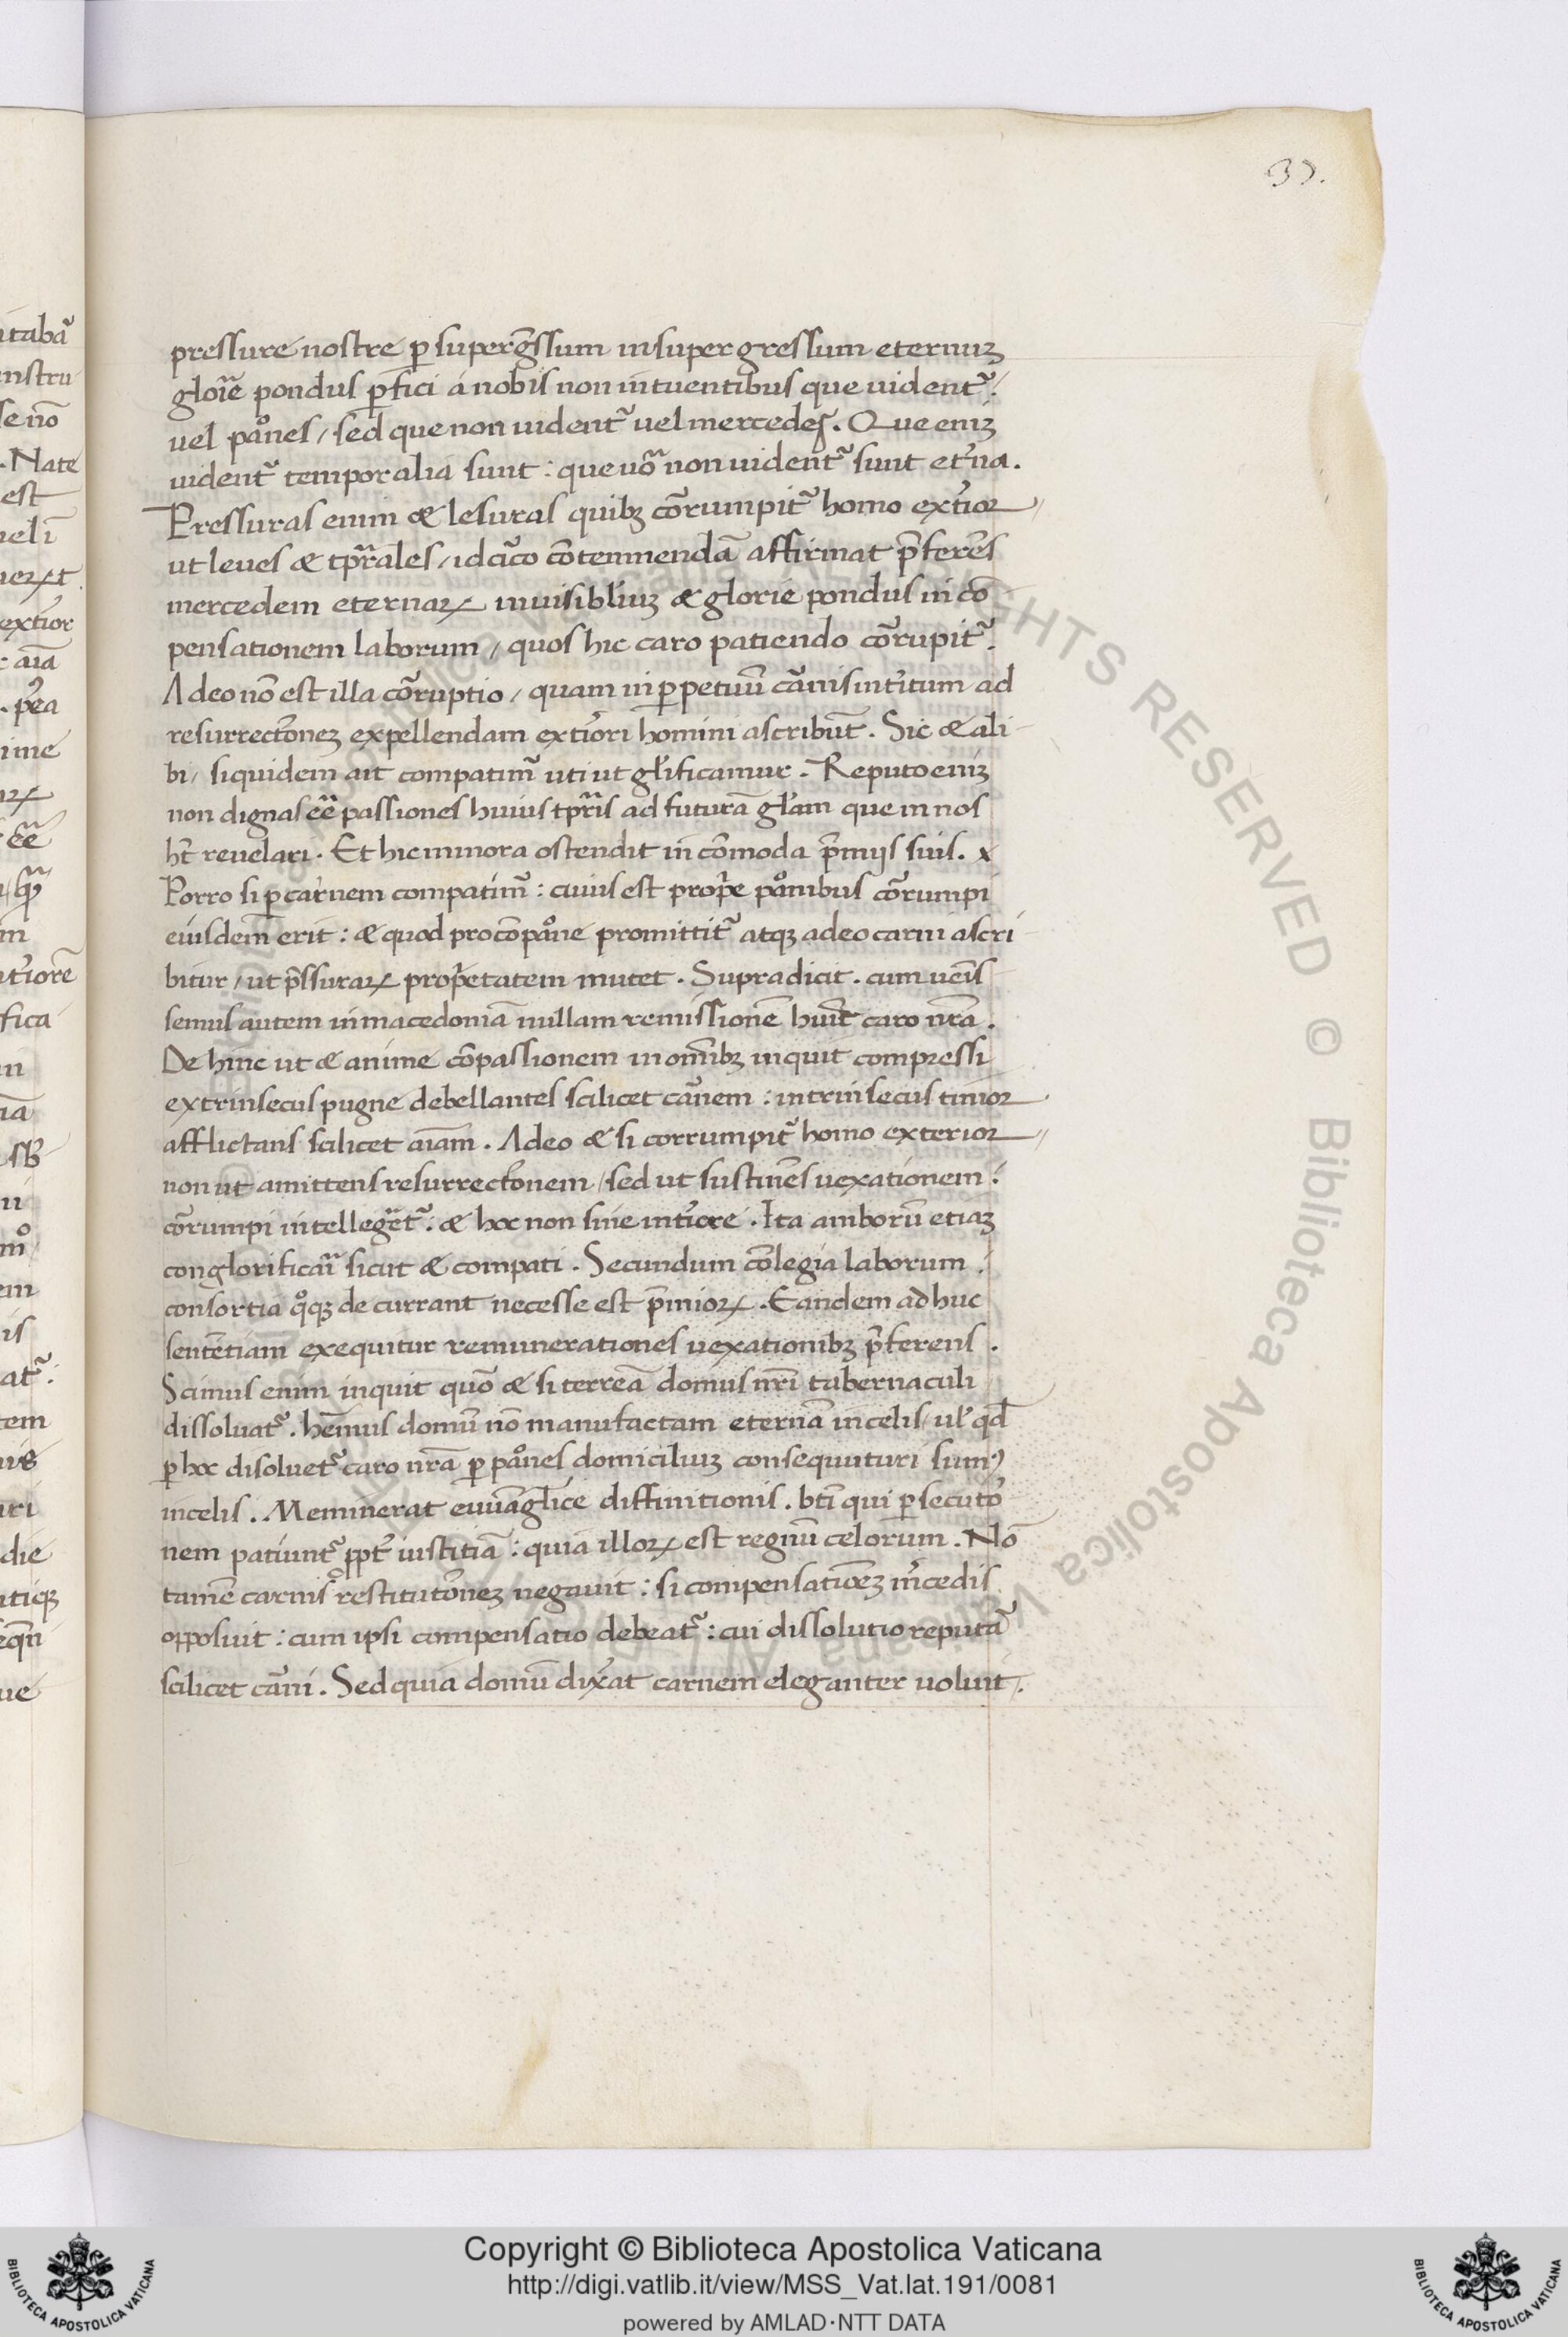 37.
pressure nostre ꝑ superg̃ssum in supergressum eternuꝫ
glor̃e pondus ꝑfici a nobis non intuentibus que uident᷑:
vel pãones / sed que non uident᷑ uel mercedes. Que eniꝫ
uident᷑ temporalia sunt : que uõ non uident᷑ sunt et̃na.
Pressuras enim & lesuras quibꝫ cõrumpit᷑ homo ext̃ior
ut leues & tp̃rales / idcĩco cõtemnendã affirmat p̃ferẽs
mercedem eternaꝝ inuisibliuꝫ & glorie pondus in cõ
pensationem laborum / quos hic caro patiendo cõrupit᷑.
Adeo nõ est illa cõruptio / quam in ꝑpetuũ cãnis int̃itum ad
resurrectõneꝫ expellendam ext̃iori homini ascribũt. Sic & ali
bi / siquidem ait compatim᷑ uti ut gl̃ificamur. Reputo eniꝫ
non dignas eẽ passiones huius tp̃ris ad futurã gl̃am que in nos
ht̃ reuelari. Et hic minora ostendit incõmoda p̃mijs suis. x
Porro si ꝑ carnem compatim᷑ : cuius est prop̃e pãonibus cõrumpi
eiusdem erit : & quod pro cõpãone promittit᷑ atqꝫ adeo carni ascri
bitur / ut p̃ssuraꝝ prop̃etatem mutet. Supra dicit. cum uẽis
semus autem in macedoniã nullam remissionẽ huit̃ caro nr̃a.
De hinc ut & anime cõpassionem in om̃ibꝫ inquit compressi
extrinsecus pugne debellantes scilicet cãnem : intrinsecus timor
afflictans scilicet aiam. Adeo & si corrumpit᷑ homo exterior
non ut amittens resurrectõnem / sed ut sustinẽs uexationem:
cõrumpi intellegẽt᷑ : & hoc non sine int̃iore. Ita amborũ etiaꝫ
conglorificaĩ sicut & compati. Secundum cõlegia laborum
consortia q̊qꝫ de currant necesse est p̃mioꝝ. Eandem adhuc
sentẽtiam exequitur remunerationes uexationibꝫ p̃ferens.
Scimus enim inquit quõ & si terreã domus nr̃i tabernaculi
dissoluat᷑. hẽmus domũ nõ manufactam eternã in celis / ul̃ qd̃
ꝑ hoc disoluet᷑ caro nr̃a ꝑ pãones domiciliuꝫ consequuturi sumꝰ
in celis. Meminerat euuãgl̃ice diffinitionis. bt̃i qui ꝑsecutõ
nem patiunt᷑ ppt̃ iustitiã : quia illoꝝ est regnũ celorum. Nõ
tamẽ carnis restitutõneꝫ negauit : si compensatiõeꝫ m̃cedis
opposuit : cum ipsi compensatio debeat᷑ : cui dissolutio reputã
scilicet cãni. Sed quia domũ dix̃at carnem eleganter uoluit.
ALL RIGHTS RESERVED © Biblioteca Apostolica Vaticana
Copyright © Biblioteca Apostolica Vaticana
http://digi.vatlib.it/view/MSS_Vat.lat.191/0081
powered by AMLAD·NTT DATA
BIBLIOTECA APOSTOLICA VATICANA
BIBLIOTECA APOSTOLICA VATICANA